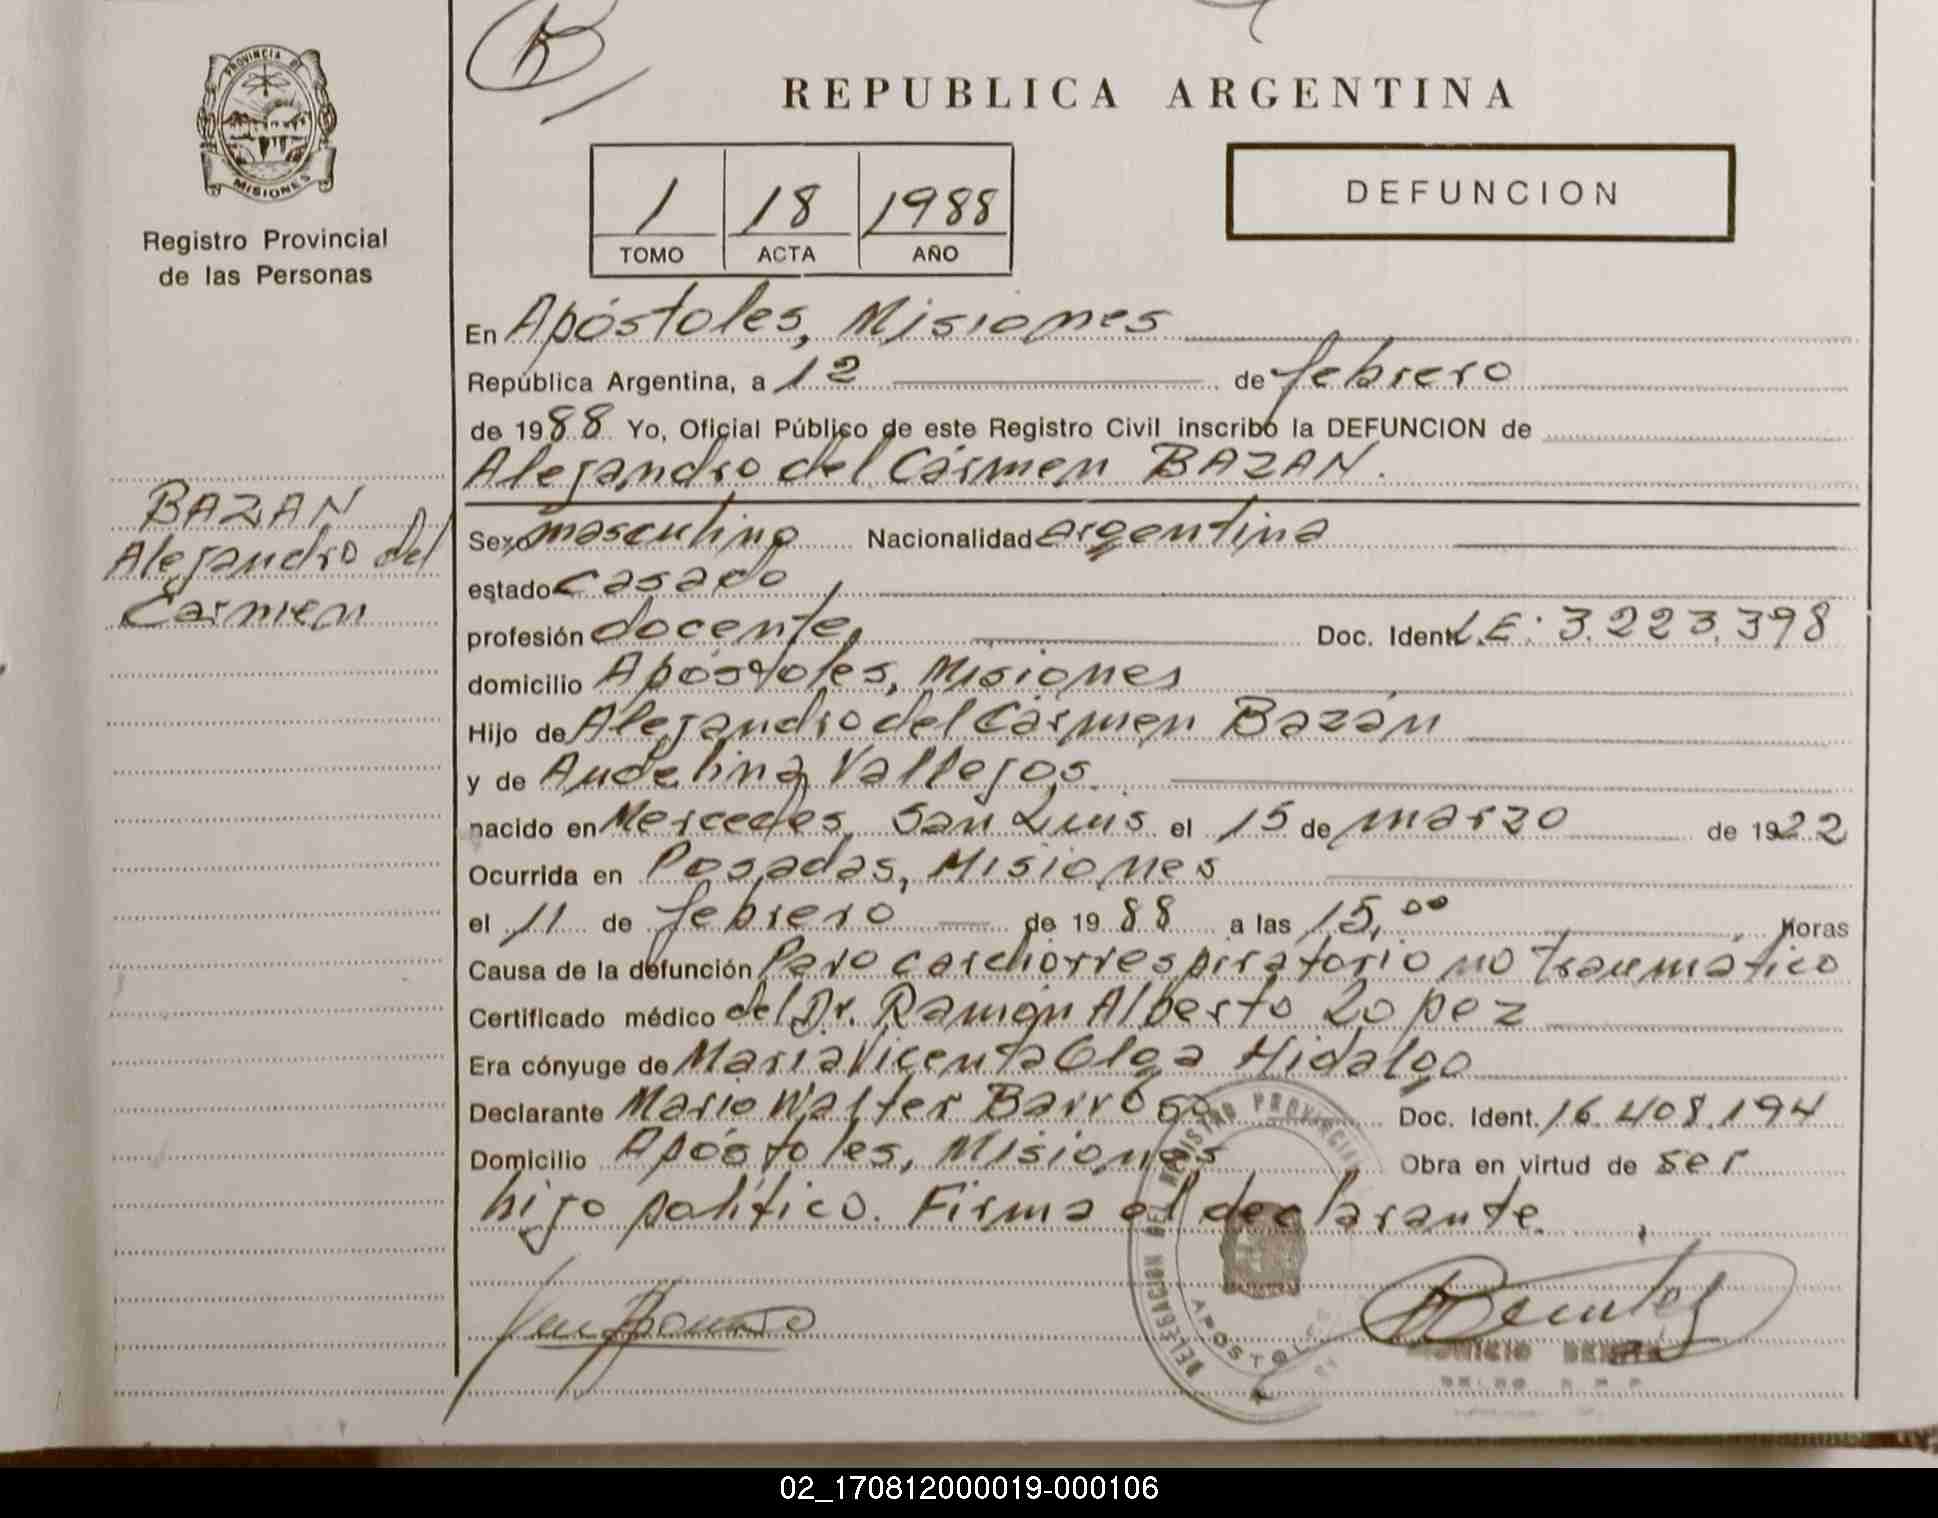 PROVINCIA DE
MISIONES
Registro Provincial
de las Personas
BAZAN
Alejandro del
Carmen
REPUBLICA ARGENTINA
1 18 1988
TOMO ACTA AÑO
DEFUNCION
En Apóstoles, Misiones
República Argentina, a 12 de febrero
de 1988 Yo, Oficial Público de este Registro Civil inscribo la DEFUNCION de
Alejandro del Cármen BAZAN.
Sexo masculino Nacionalidad argentina
estado casado
profesión docente, Doc. Ident. L.E: 3.223.398
domicilio Apóstoles, Misiones
Hijo de Alejandro del Cármen Bazán
y de Audelina Vallejos
nacido en Mercedes, San Luis el 15 de marzo de 1922
Ocurrida en Posadas, Misiones
el 11 de febrero de 1988 a las 15,00 Horas
Causa de la defunción Paro cardiorrespiratorio no traumático
Certificado médico del Dr. Ramón Alberto Lopez
Era cónyuge de María Vicenta Olga Hidalgo
Declarante Mario Walter Barroso Doc. Ident. 16.408.194
Domicilio Apóstoles, Misiones Obra en virtud de ser
hijo político. Firma el declarante.
DELEGACION DEL REGISTRO PROVINCIAL
APOSTOLES
02_170812000019-000106